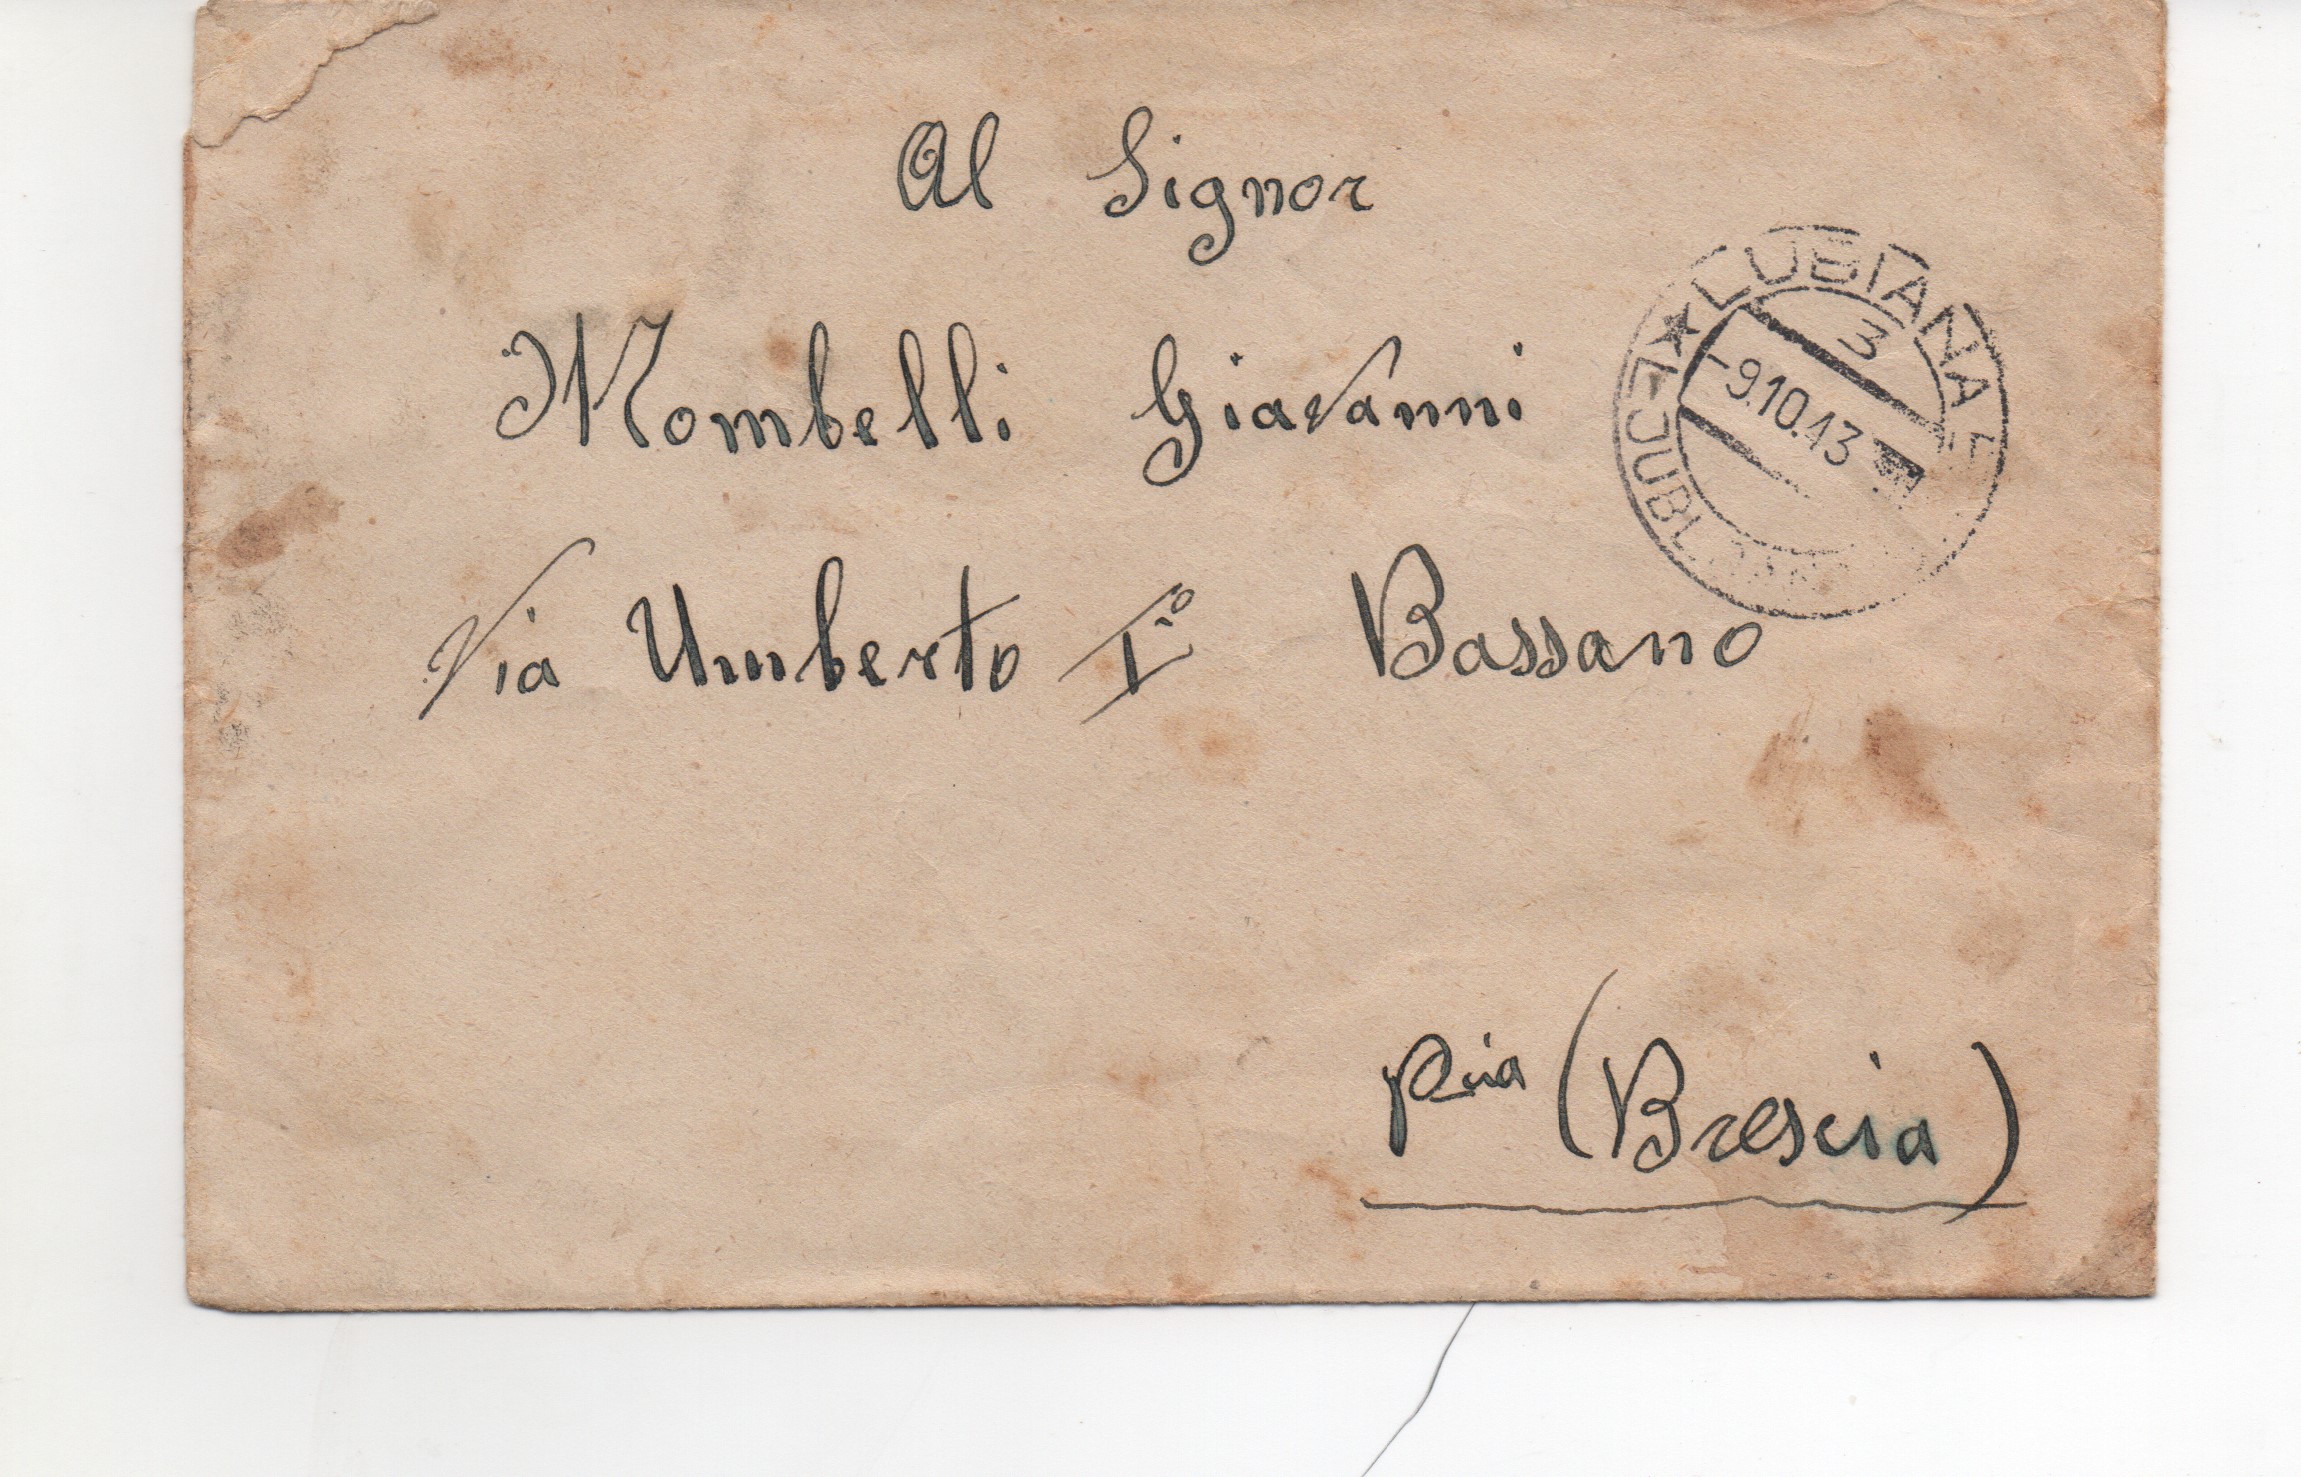 Al Signor
LUBIANA
3
-9.10.43
LJUBLJANA
Mombelli Giovanni
Via Umberto I° Bassano
Pcia (Brescia)